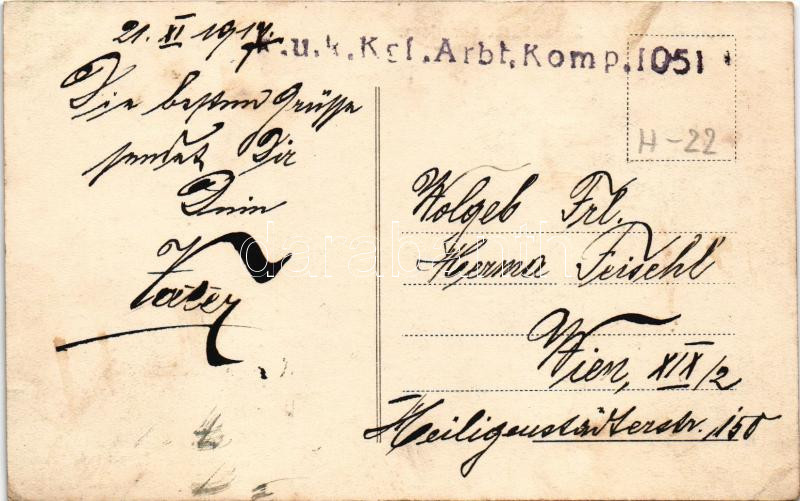 21. XI 1917.
K.u.k.Kgf.Arbt.Komp.1051
Die besten Grüsse
sendet Dir
Dein
Vater
H-22
Wolgeb Frl.
Herma Feischl
Wien, XIX/2
Heiligenstädterstr. 150
darabanth.com